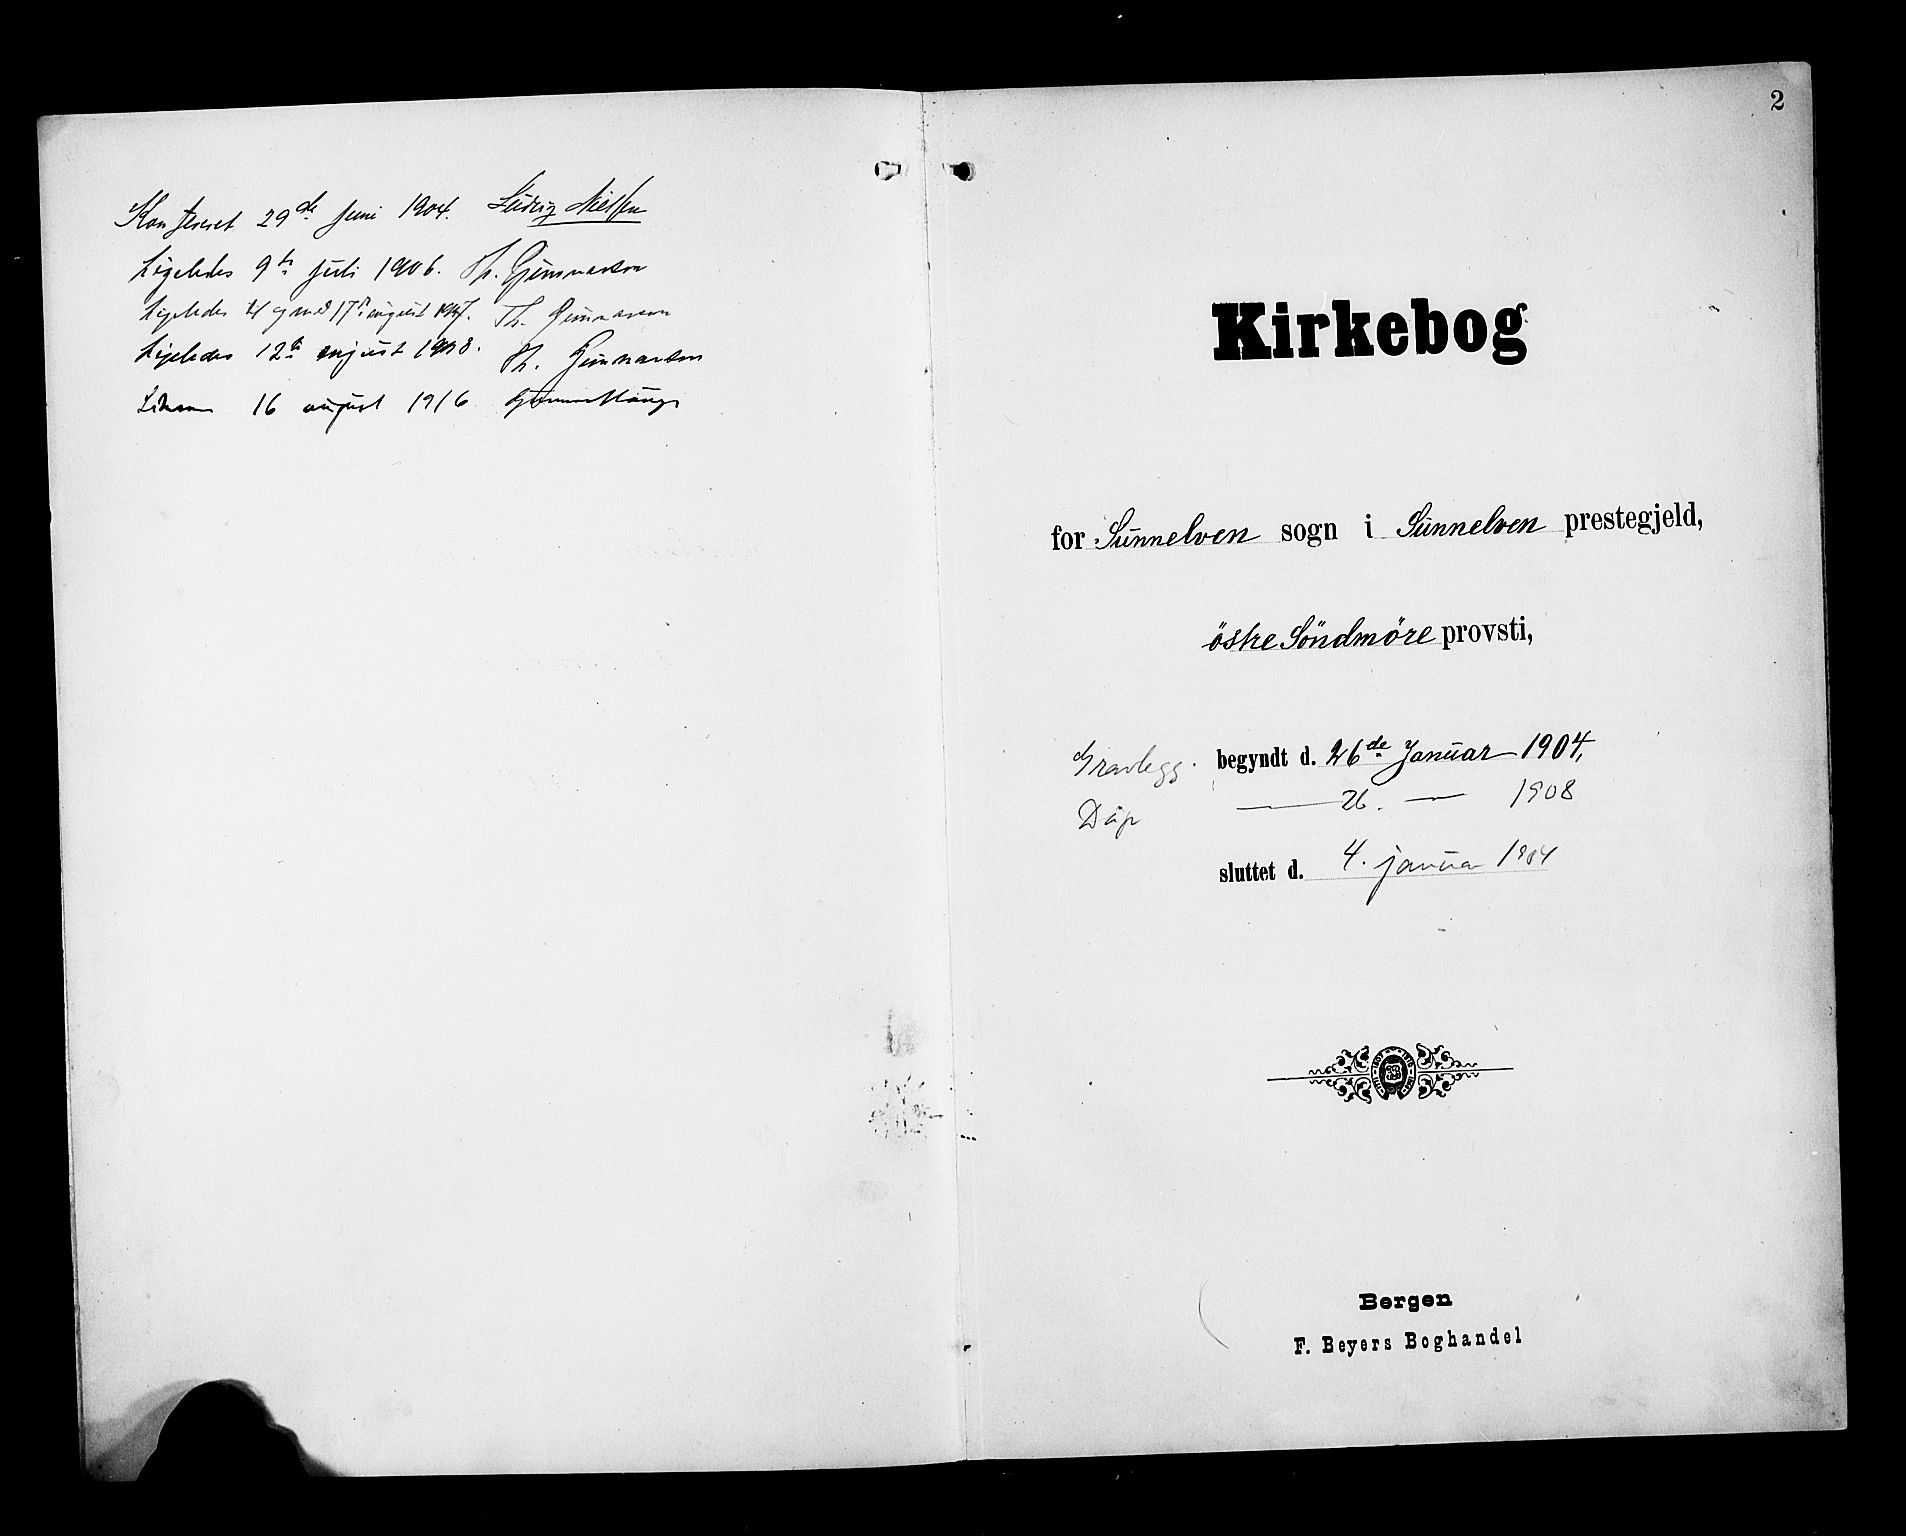 Konfereret 29de Juni 1904. Ludvig Nielsen
Ligeledes 9de juli 1906. Th. Gunnarson
Ligeledes august 1907. Th. Gunnarson
Ligeledes 12te august 1908. Th. Gunnarson
16 august 1916
2
Kirkebog
for Sunnelven sogn i Sunnelven prestegjeld,
östre Söndmöre provsti,
Gravlegg. begyndt d. 26de Januar 1904,
Dåp — 26. — 1908
sluttet d. 4. januar
Bergen
F. Beyers Boghandel